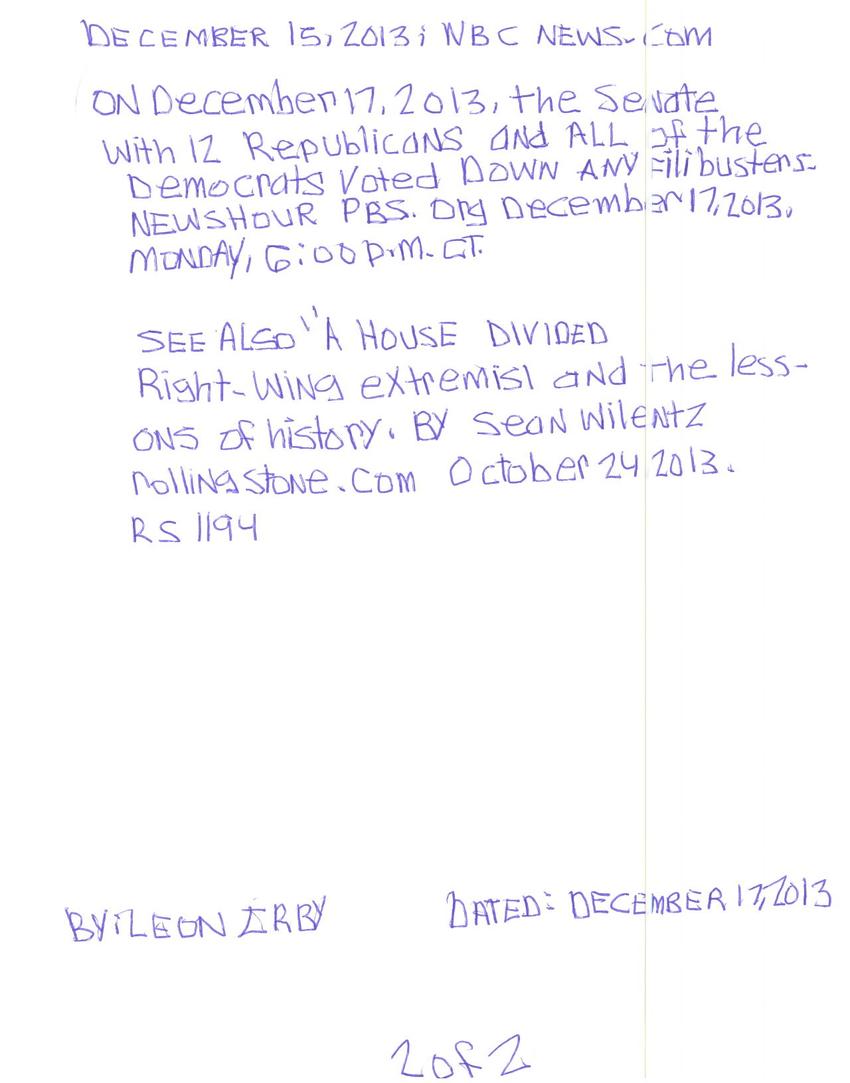 DECEMBER 15, 2013; NBC NEWS.COM
ON December 17, 2013, the Senate
with 12 Republicans and ALL of the
Democrats Voted Down ANY Filibusters.
NEWSHOUR PBS. Org December 17, 2013,
MONDAY, 6:00 P.M. CT.
SEE ALSO "A HOUSE DIVIDED
Right-Wing extremisl and the less-
ons of history. BY Sean Wilentz
rollingstone.com October 24 2013.
RS 1194
BY: LEON IRBY
DATED: DECEMBER 17, 2013
2 of 2